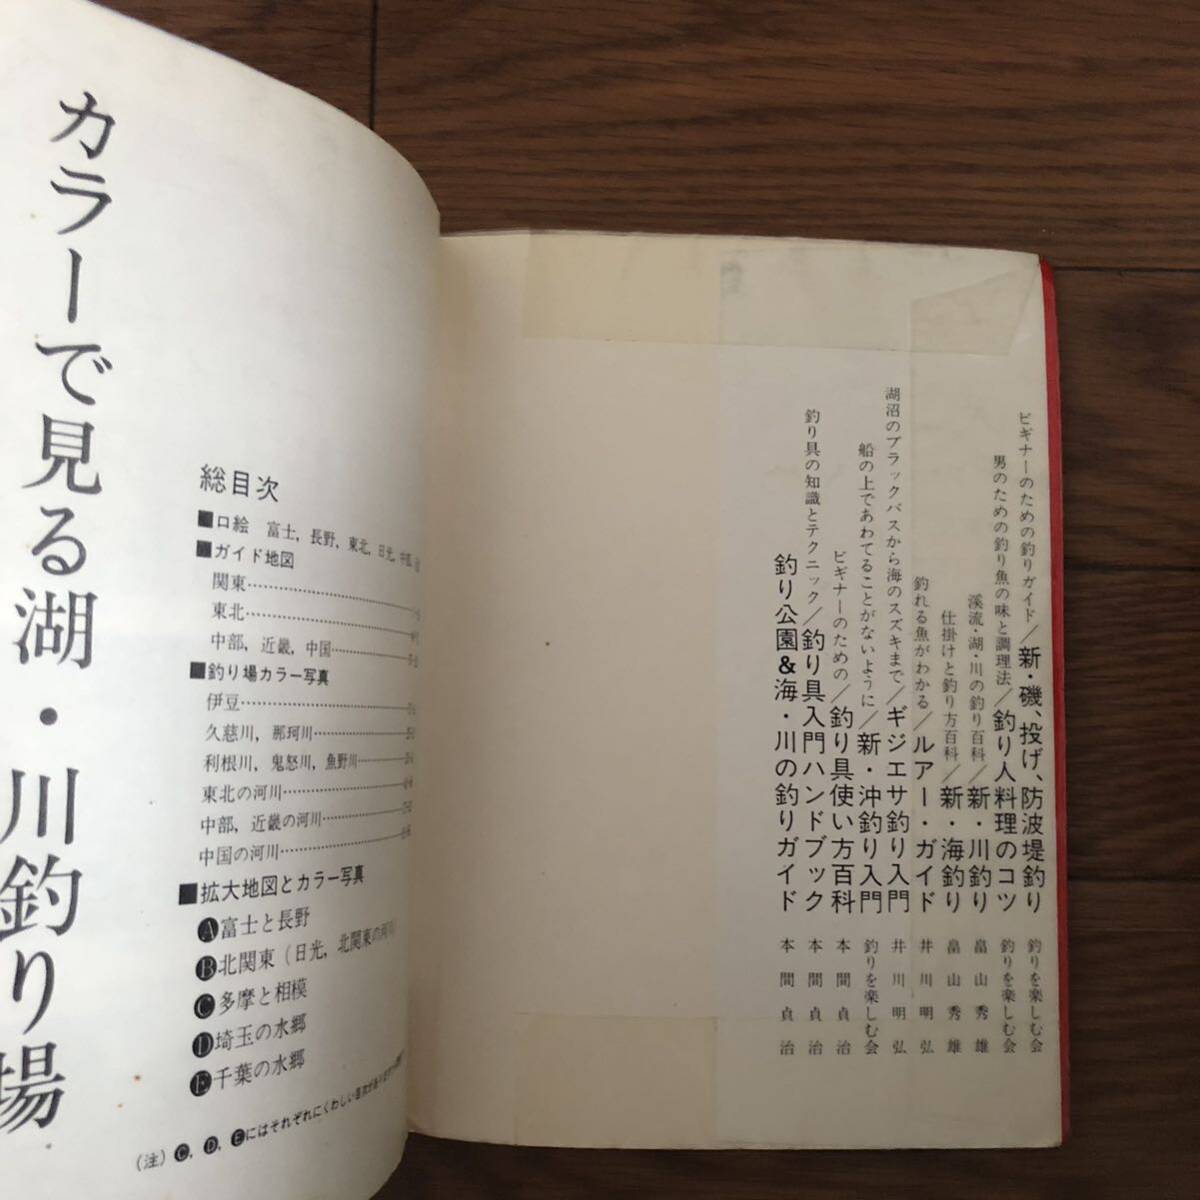 カラーで見る湖・川釣り場
総目次
■口絵 富士,長野,東北,日光,中部,
■ガイド地図
関東……………
東北……………
中部,近畿,中国………
■釣り場カラー写真
伊豆……………
久慈川,那珂川………
利根川,鬼怒川,魚野川……
東北の河川…………
中部,近畿の河川………
中国の河川…………
■拡大地図とカラー写真
Ⓐ富士と長野
Ⓑ北関東(日光,北関東の河川
Ⓒ多摩と相模
Ⓓ埼玉の水郷
Ⓔ千葉の水郷
(注)Ⓒ,Ⓓ,Ⓔにはそれぞれにくわしい目次があります
ビギナーのための釣りガイド/新・磯、投げ、防波堤釣り 釣りを楽しむ会
男のための釣り魚の味と調理法/釣り人料理のコツ 釣りを楽しむ会
渓流・湖・川の釣り百科/新・川釣り 畠山秀雄
仕掛けと釣り方百科/新・海釣り 畠山秀雄
釣れる魚がわかる/ルアー・ガイド 井川明弘
湖沼のブラックバスから海のスズキまで/ギジエサ釣り入門 井川明弘
船の上であわてることがないように/新・沖釣り入門 釣りを楽しむ会
ビギナーのための/釣り具使い方百科 本間貞治
釣り具の知識とテクニック/釣り具入門ハンドブック 本間貞治
釣り公園&海・川の釣りガイド 本間貞治